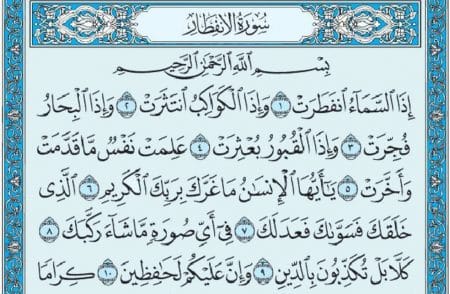 سُورَةُ الانفِطَار
بِسْمِ اللَّهِ الرَّحْمَٰنِ الرَّحِيمِ
إِذَا السَّمَاءُ انفَطَرَتْ ١ وَإِذَا الْكَوَاكِبُ انتَثَرَتْ ٢ وَإِذَا الْبِحَارُ
فُجِّرَتْ ٣ وَإِذَا الْقُبُورُ بُعْثِرَتْ ٤ عَلِمَتْ نَفْسٌ مَّا قَدَّمَتْ
وَأَخَّرَتْ ٥ يَٰأَيُّهَا الْإِنسَٰنُ مَا غَرَّكَ بِرَبِّكَ الْكَرِيمِ ٦ الَّذِي
خَلَقَكَ فَسَوَّىٰكَ فَعَدَلَكَ ٧ فِي أَيِّ صُورَةٍ مَّا شَاءَ رَكَّبَكَ ٨
كَلَّا بَلْ تُكَذِّبُونَ بِالدِّينِ ٩ وَإِنَّ عَلَيْكُمْ لَحَٰفِظِينَ ١٠ كِرَامًا